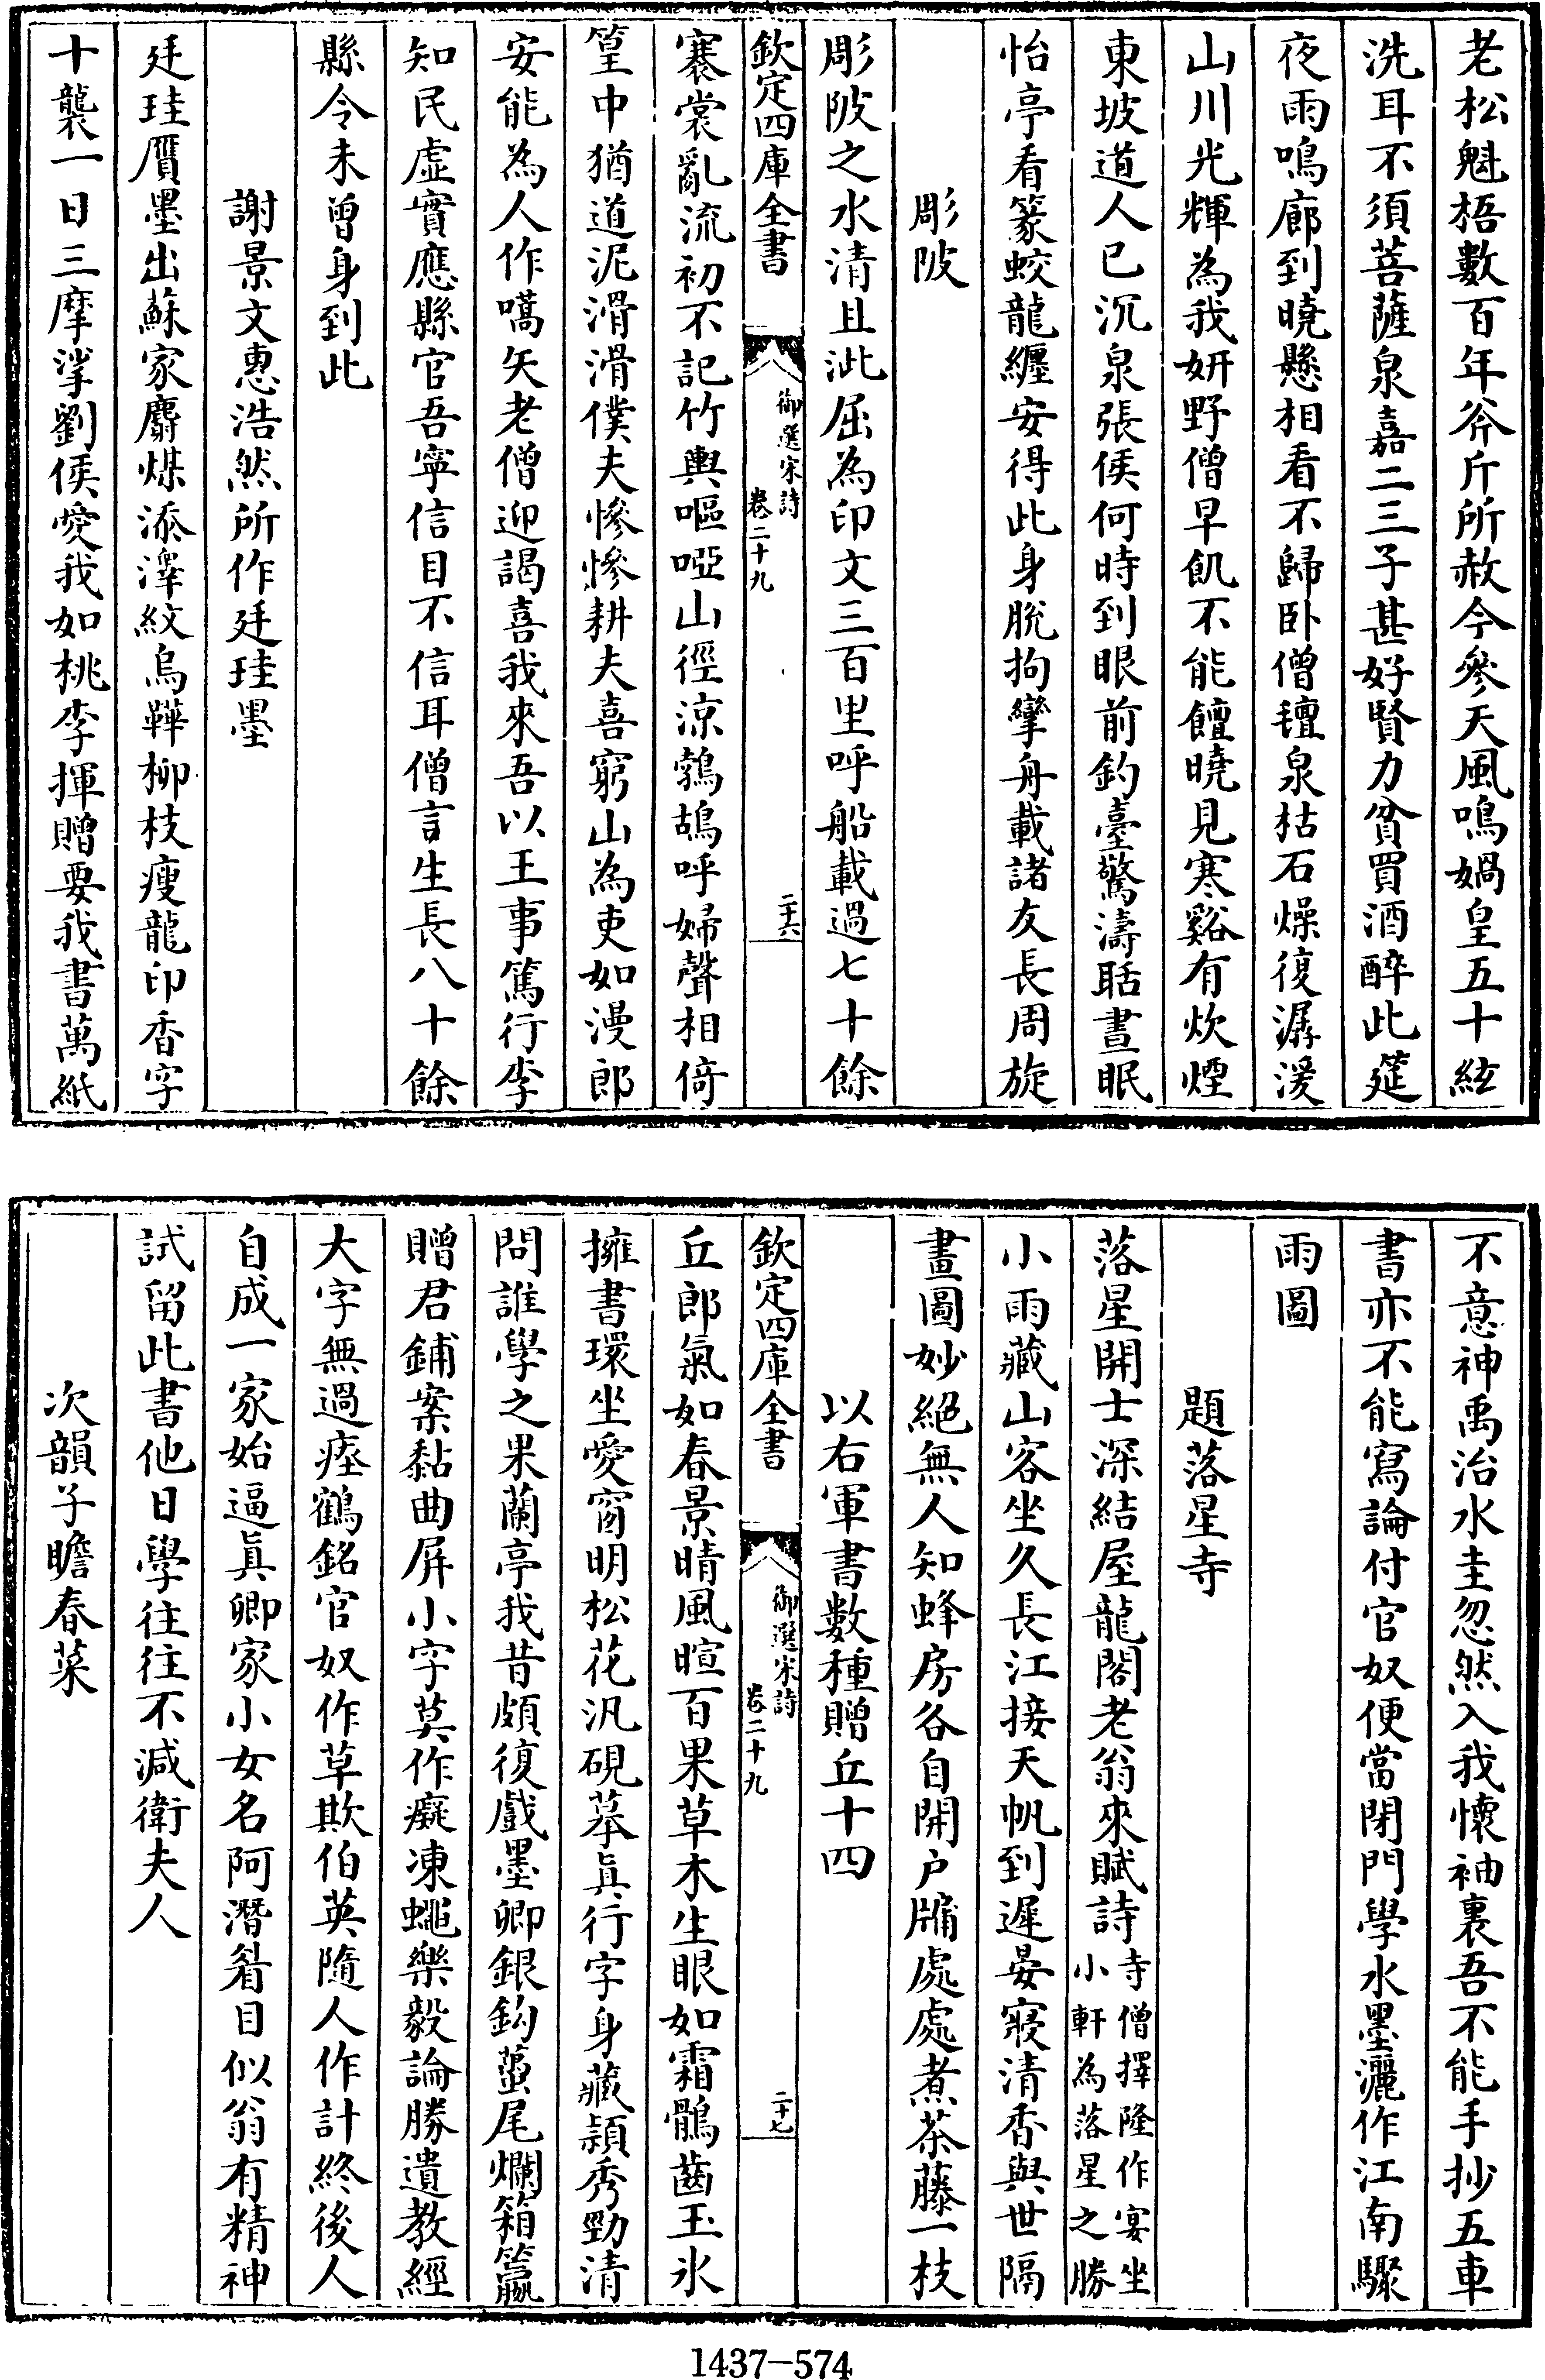 老松魁梧數百年斧斤所赦今參天風鳴媧皇五十絃
洗耳不須菩薩泉嘉二三子甚好賢力貧買酒醉此筵
夜雨鳴廊到曉懸相看不歸卧僧氊泉枯石燥復潺湲
山川光輝為我妍野僧早飢不能饘曉見寒谿有炊煙
東坡道人已沉泉張侯何時到眼前釣臺驚濤聒晝眠
怡亭看篆蛟龍纏安得此身脫拘攣舟載諸友長周旋
彫陂
彫陂之水清且泚屈為印文三百里呼船載過七十餘
欽定四庫全書
御選宋詩
卷二十九
二十六
褰裳亂流初不記竹輿嘔啞山徑涼鶉鴣呼婦聲相倚
篁中猶道泥滑滑僕夫慘慘耕夫喜窮山為吏如漫郎
安能為人作嚆矢老僧迎謁喜我來吾以王事篤行李
知民虛實應縣官吾寧信目不信耳僧言生長八十餘
縣令未曾身到此
謝景文惠浩然所作廷珪墨
廷珪贋墨出蘇家麝煤添澤紋烏鞾柳枝瘦龍印香字
十襲一日三摩挲劉侯愛我如桃李揮贈要我書萬紙
不意神禹治水圭忽然入我懷袖裏吾不能手抄五車
書亦不能寫論付官奴便當閉門學水墨灑作江南驟
雨圖
題落星寺
落星開士深結屋龍閣老翁來賦詩寺僧擇隆作宴坐小軒為落星之勝
小雨藏山客坐久長江接天帆到遲晏寢清香與世隔
畫圖妙絕無人知蜂房各自開户牖處處煮茶藤一枝
以右軍書數種贈丘十四
欽定四庫全書
御選宋詩
卷二十九
二十七
丘郎氣如春景晴風暄百果草木生眼如霜鶻齒玉氷
擁書環坐愛窗明松花汎硯摹眞行字身藏頴秀勁清
問誰學之果蘭亭我昔頗復戲墨卿銀鈎蠆尾爛箱籯
贈君鋪案黏曲屏小字莫作癡凍蠅樂毅論勝遺教經
大字無過瘞鶴銘官奴作草欺伯英隨人作計終後人
自成一家始逼眞卿家小女名阿潛眉目似翁有精神
試留此書他日學往往不減衛夫人
次韻子瞻春菜
1437-574